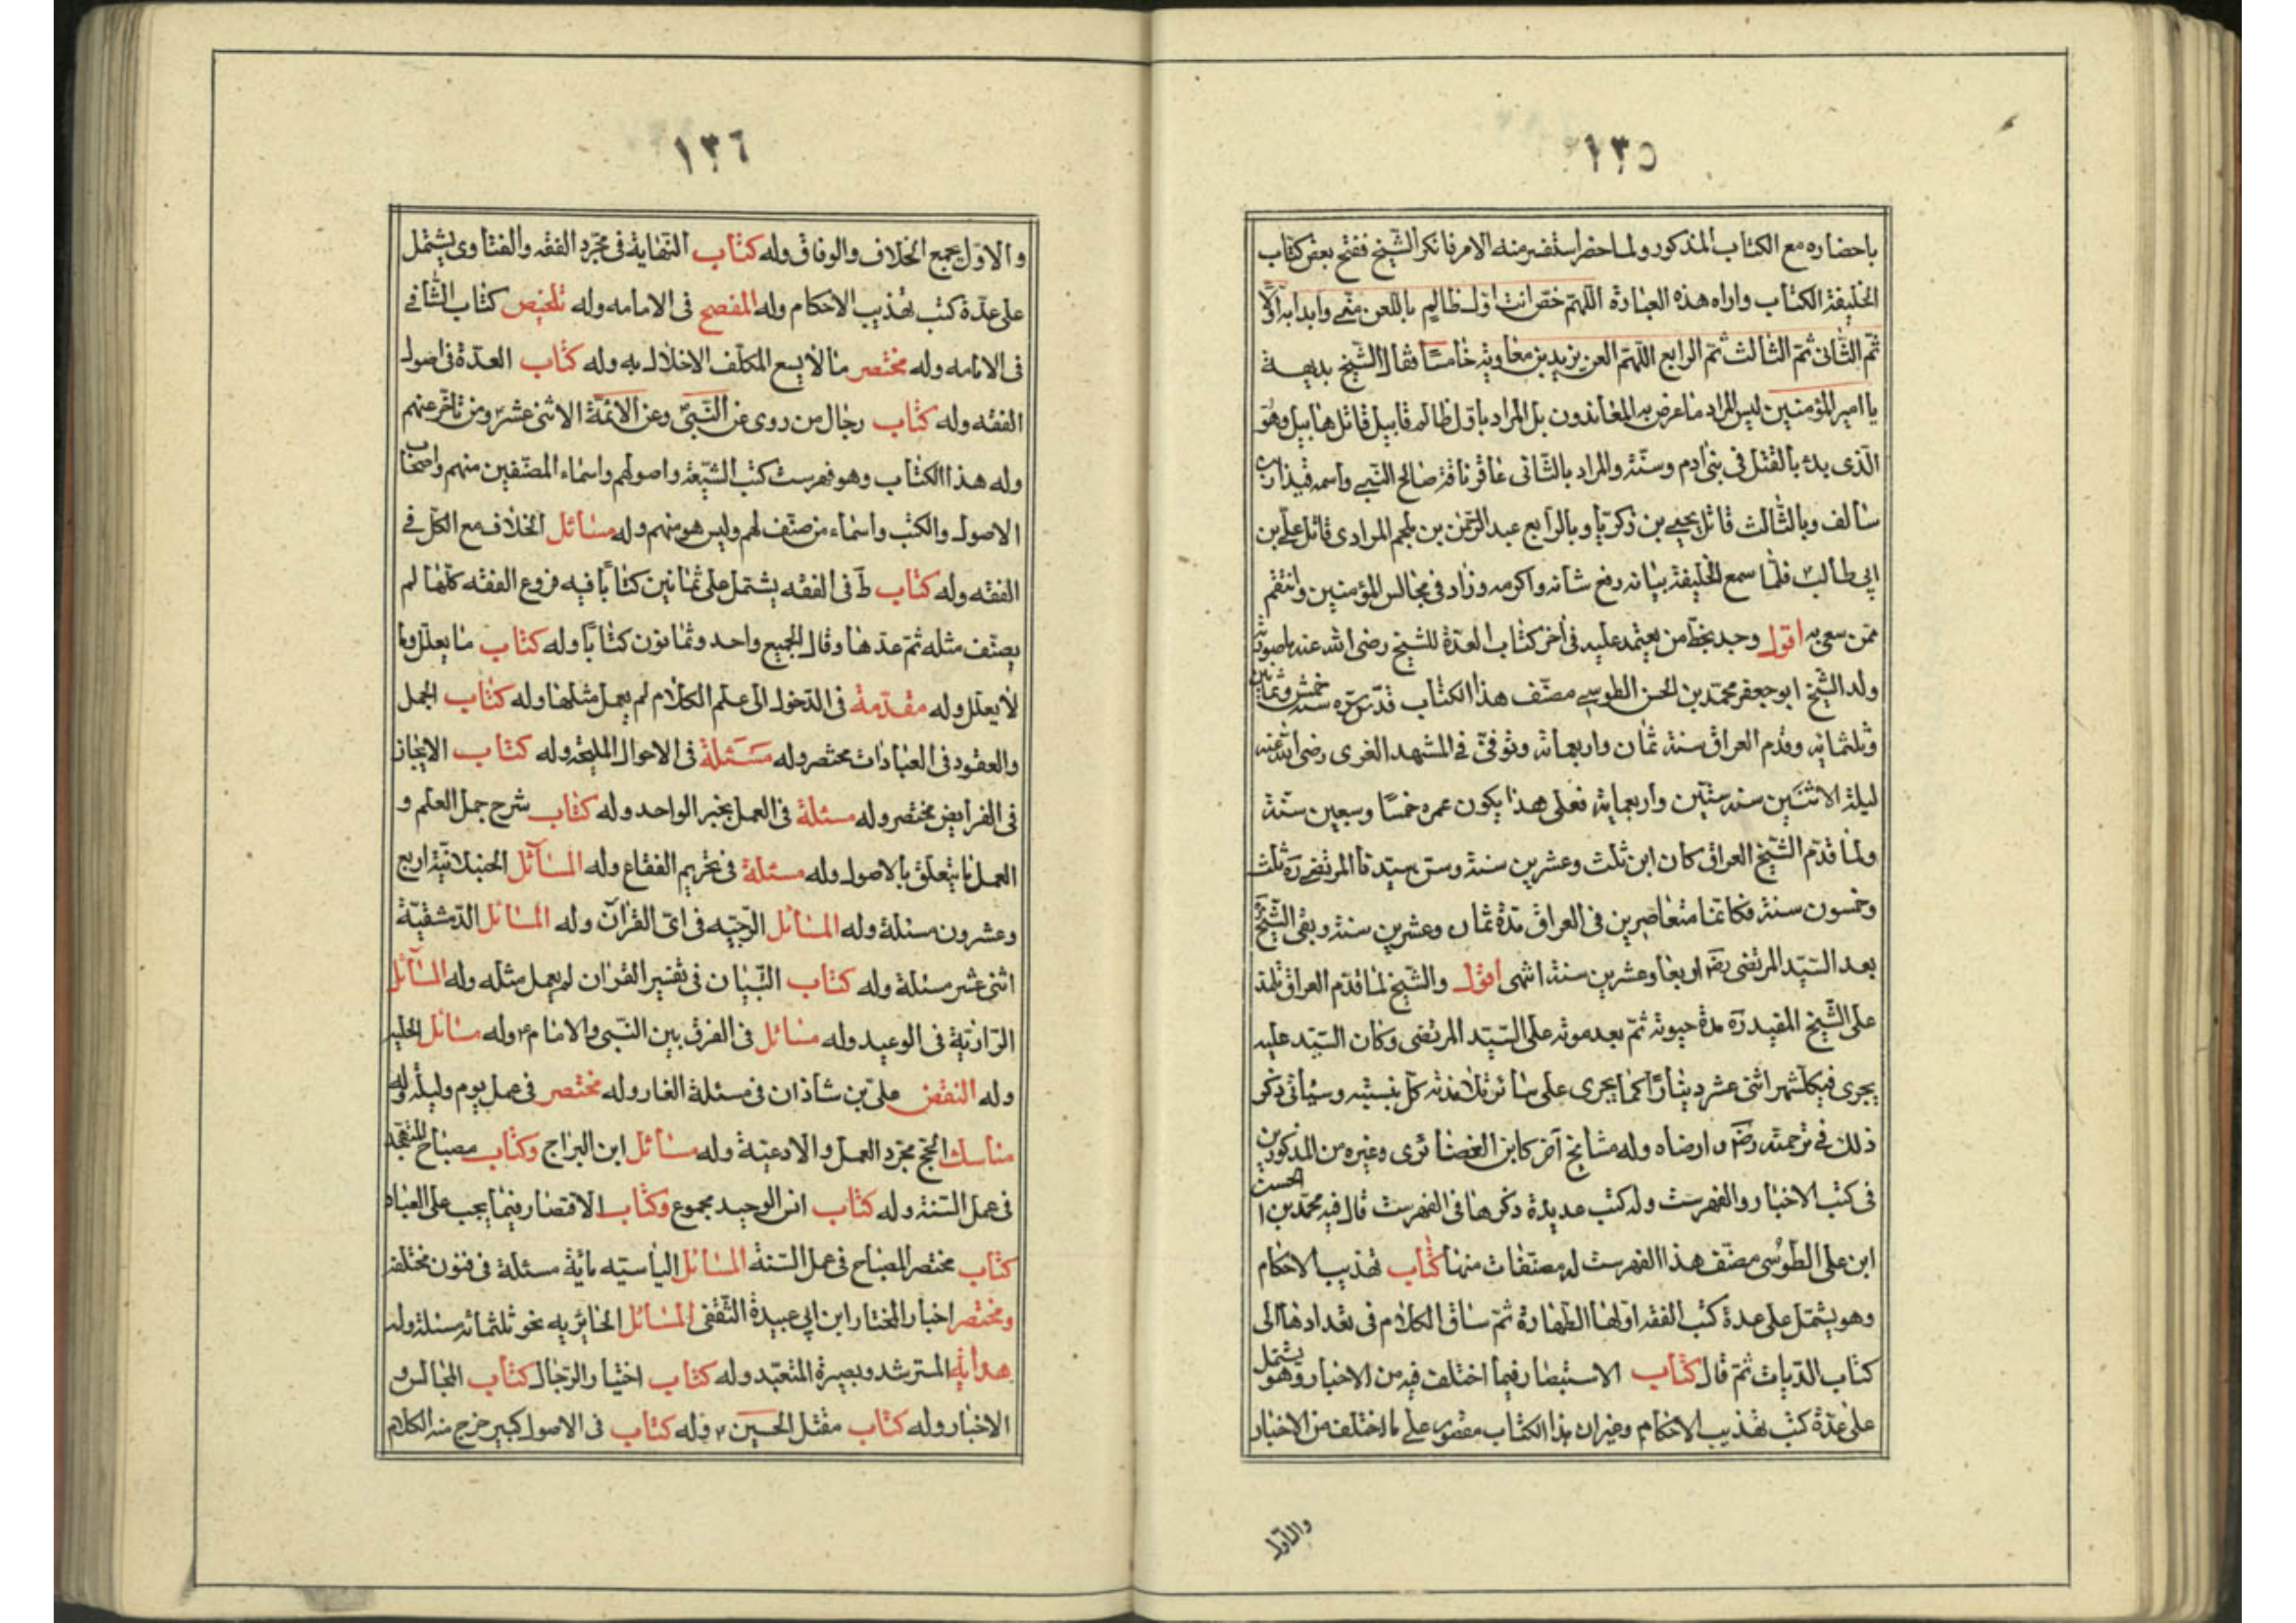 ١٣٥
باحضاره مع الكتاب المذكور ولما حضر استفسر منه الامر فانكر الشّيخ ففتح بعض كتاب
الخليفة الكتاب واراه هذه العبارة اللّهمّ خصّ انت اوّل ظالم باللّعن منّى وابدا به اوّلا
ثمّ الثّانى ثمّ الثالث ثمّ الرابع اللّهمّ العن يزيد بن معاوية خامسًا فقال الشّيخ بديهة
يا امير المؤمنين ليس المراد ما عرض به المعاندون بل المراد باوّل ظالم قابيل قاتل هابيل وهو
الّذى بدء بالقتل فى بنى ادم وسنّه والمراد بالثّانى عاقر ناقة صالح النّبى واسمه قيذار بن
سالف وبالثّالث قاتل يحيى بن زكريّا وبالرابع عبد الرّحمن بن ملجم المرادى قاتل على بن
ابى طالب فلمّا سمع الخليفة بيانه رفع شانه واكرمه وزاد فى مجالس المؤمنين وانتقم
ممّن سعى به اقول وجد بخطّ من يعتمد عليه فى اخر كتاب العدّة للشّيخ رضى الله عنه ما صورته
ولد الشّيخ ابو جعفر محمّد بن الحسن الطوسى مصنّف هذا الكتاب قدّس سرّه سنة خمس وثمانين
وثلثمائة وقدم العراق سنة ثمان واربعمائة وتوفّى فى المشهد الغرى رضى الله عنه
ليلة الاثنين سنة ستّين واربعمائة فعلى هذا يكون عمره خمسًا وسبعين سنّة
ولمّا قدم الشّيخ العراق كان ابن ثلث وعشرين سنة وسنّ سيّدنا المرتضى ره ثلث
وخمسون سنة فكانا متعاصرين فى العراق مدّة ثمان وعشرين سنة وبقى الشّيخ
بعد السّيّد المرتضى رضه اربعا وعشرين سنة انتهى اقول والشّيخ لمّا قدم العراق تلمذ
على الشّيخ المفيد ره مدّة حيوته ثمّ بعد موته على السّيّد المرتضى وكان السّيّد عليه
يجرى فيكلّشهر اثنى عشر دينارًا كما يجرى على سائر تلامذته كلّ بنسبته وسياتى ذكر
ذلك فى ترجمته رضه وارضاه وله مشايخ اخر كابن الغضائرى وغيره من المذكورين
فى كتب الاخبار والفهرست وله كتب عديدة ذكرها فى الفهرست قال فيه محمّد بن الحسن
ابن على الطوسى مصنّف هذا الفهرست له مصنّفات منها كتاب تهذيب الاحكام
وهو يشتمل على عدة كتب الفقه اوّلها الطّهارة ثمّ ساق الكلام فى تعدادها الى
كتاب الدّيات ثمّ قال كتاب الاستبصار فيما اختلف فيه من الاخبار وهو يشتمل
على عدّة كتب تهذيب الاحكام وغير ان هذا الكتاب مقصور على ما اختلف من الاخبار
والاوّل
١٣٦
والاوّل يجمع الخلاف والوفاق وله كتاب النّهاية فى مجرّد الفقه والفتاوى يشتمل
على عدّة كتب تهذيب الاحكام وله المفصح فى الامامه وله تلخيص كتاب الشّافى
فى الامامه وله مختصر ما لا يسع المكلّف الاخلال به وله كتاب العدّة فى اصول
الفقه وله كتاب رجال من روى عن النّبىّ وعن الائمّة الاثنى عشر ومن تاخّر عنهم
وله هذا الكتاب وهو فهرست كتب الشّيعة واصولهم واسماء المصنّفين منهم واصحاب
الاصول والكتب واسماء من صنّف لهم وليس هو منهم وله مسائل الخلاف مع الكلّ فى
الفقه وله كتاب ط فى الفقه يشتمل على ثمانين كتابًا فيه فروع الفقه كلّها لم
يصنّف مثله ثمّ عدّها وقال الجميع واحد وثمانون كتابًا وله كتاب ما يعلّل وما
لا يعلّل وله مقدّمة فى الدّخول الى علم الكلام لم يعمل مثلها وله كتاب الجمل
والعقود فى العبادات مختصر وله مسئلة فى الاحوال المليحة وله كتاب الايجاز
فى الفرايض مختصر وله مسئلة فى العمل بخبر الواحد وله كتاب شرح جمل العلم و
العمل ما يتعلّق بالاصول وله مسئلة فى تحريم الفقاع وله المسائل الجنبلائيّة اربع
وعشرون مسئلة وله المسائل الرّجبيّه فى اى القرآن وله المسائل الدّمشقيّة
اثنى عشر مسئلة وله كتاب التّبيان فى تفسير القران لم يعمل مثله وله المسائل
الرّازيّة فى الوعيد وله مسائل فى الفرق بين النّبى والامام وله مسائل الحلبيه
وله النقض على بن شاذان فى مسئلة الغار وله مختصر فى عمل يوم وليلة وله
مناسك الحّج مجرّد العمل والادعيّة وله مسائل ابن البرّاج وكتاب مصباح المتهجّد
فى عمل السّنة وله كتاب انس الوحيد مجموع وكتاب الاقتصار فيما يجب على العباد
كتاب مختصر المصباح فى عمل السّنة المسائل الياسيّه مائة مسئلة فى فنون مختلفة
ومختصر اخبار المختار ابن ابى عبيدة الثّقفى المسائل الحائريه نحو ثلثمائه مسئلة وله
هداية المسترشد وبصيرة المتعبّد وله كتاب اختيار الرّجال كتاب المجالس و
الاخبار وله كتاب مقتل الحسين وله كتاب فى الاصول كبير خرج منه الكلام